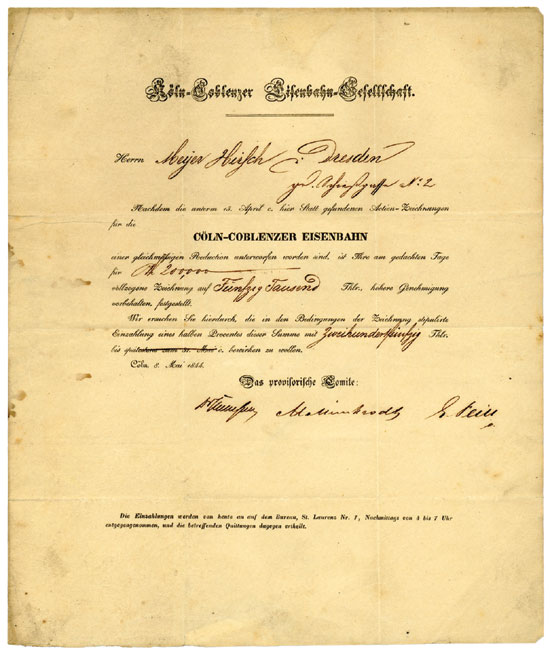 Köln-Coblenzer Eisenbahn-Gesellschaft.
Herrn Meijer Hirsch Dresden
No. 2
Nachdem die unterm 15. April c. hier Statt gefundenen Actien-Zeichnungen
für die
CÖLN-COBLENZER EISENBAHN
einer gleichmässigen Reduction unterworfen worden sind, ist Ihre am gedachten Tage
für 200,000
vollzogene Zeichnung auf Fünfzig Tausend Thlr., höhere Genehmigung
vorbehalten, festgestellt.
Wir ersuchen Sie hierdurch, die in den Bedingungen der Zeichnung stipulirte
Einzahlung eines halben Procentes dieser Summe mit Zweihundertfünfzig Thlr.
bis spätestens zum 31. Mai c. bewirken zu wollen.
Cöln, 8. Mai 1844.
Das provisorische Comite:
Die Einzahlungen werden von heute an auf dem Bureau, St. Laurenz Nr. 1, Nachmittags von 4 bis 7 Uhr
entgegengenommen, und die betreffenden Quittungen dagegen ertheilt.